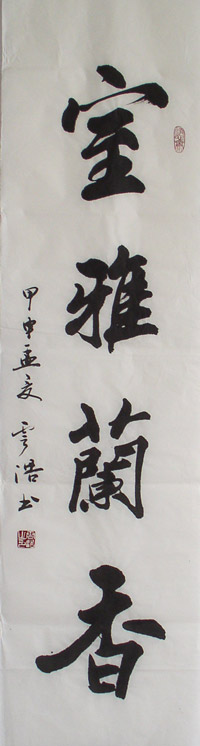 室雅蘭香
甲申孟夏 雲浩书